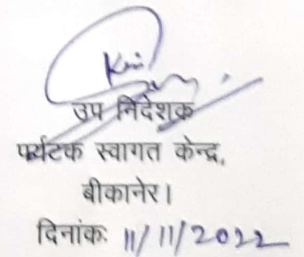 उप निदेशक
पर्यटक स्वागत केन्द्र,
बीकानेर।
दिनांकः 11/11/2022